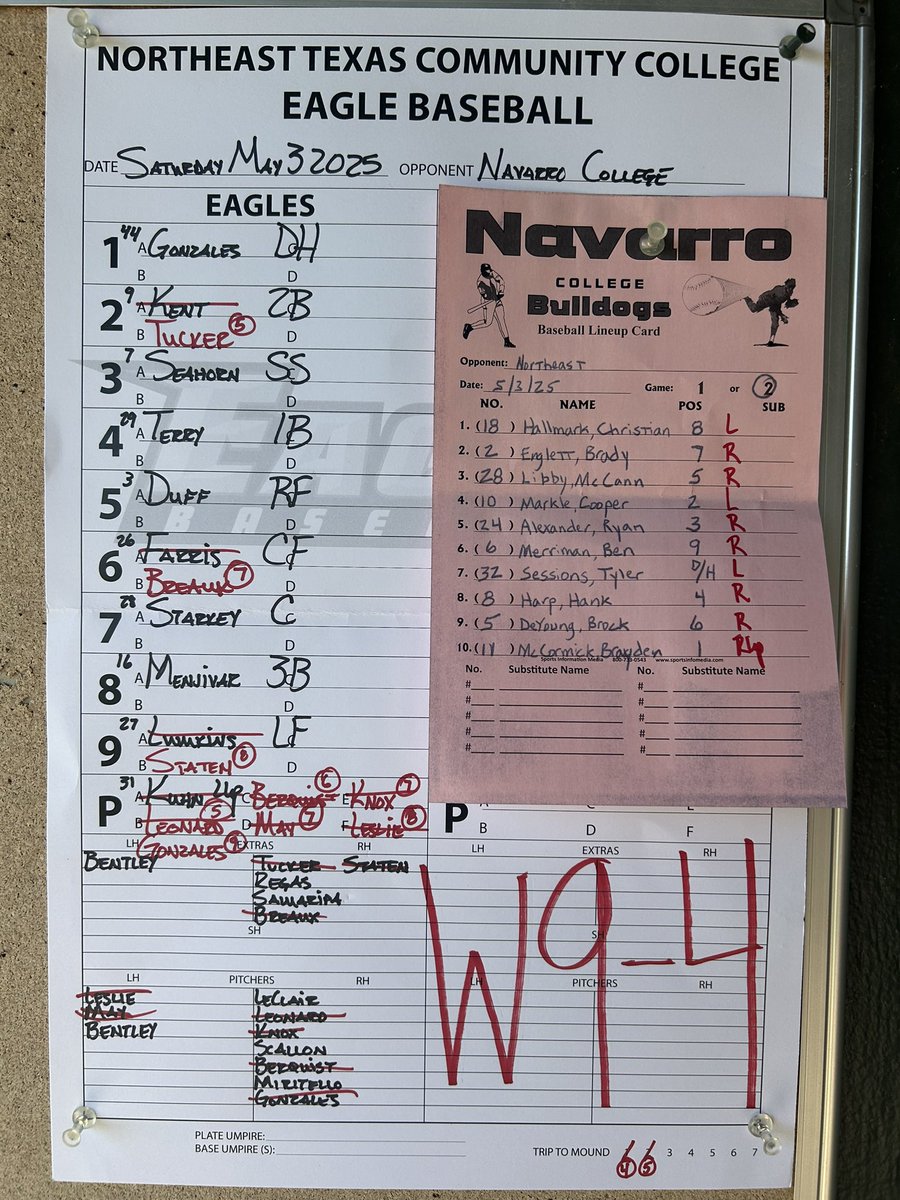 NORTHEAST TEXAS COMMUNITY COLLEGE
EAGLE BASEBALL
DATE SATURDAY MAY 3 2025 OPPONENT NAVARRO COLLEGE
EAGLES
1 44 A GONZALES C DH
B D
2 9 A KENT C 2B
B TUCKER 5 D
3 7 A SEAHORN C SS
B D
4 29 A TERRY C 1B
B D
5 3 A DUFF C RF
B D
6 26 A FARRIS C CF
B BREAUX 7 D
7 28 A STARKEY C C
B D
8 16 A MENJIVAR C 3B
B D
9 27 A LUMKINS C LF
B STATEN 8 D
P 31 A KWAN C BERQUIST 6 E KNOX 7
B LEONARD 5 D MAY 7 F LESLIE 8
GONZALES 9
LH EXTRAS RH
BENTLEY TUCKER STATEN
REGAS
SAMARIPA
BREAUX
SH
LH PITCHERS RH
LESLIE LECLAIR
MAY LEONARD
BENTLEY KNOX
SCALLON
BERQUIST
MIRITELLO
GONZALES
Navarro
COLLEGE
Bulldogs
Baseball Lineup Card
Opponent: Northeast
Date: 5/3/25 Game: 1 or 2
NO. NAME POS SUB
1. (18) Hallmark, Christian 8 L
2. (2) Englett, Brady 7 R
3. (28) Libby, McCann 5 R
4. (10) Markle, Cooper 2 L
5. (24) Alexander, Ryan 3 R
6. (6) Merriman, Ben 9 R
7. (32) Sessions, Tyler D/H L
8. (8) Harp, Hank 4 R
9. (5) DeYoung, Brock 6 R
10. (11) McCormick, Brayden 1 RHP
Sports Information Media 800-775-0543 www.sportsinfomedia.com
No. Substitute Name No. Substitute Name
# #
# #
# #
# #
# #
A C E
P B D F
LH EXTRAS RH
W 9-4
SH
LH PITCHERS RH
PLATE UMPIRE:
BASE UMPIRE (S):
TRIP TO MOUND 6 6 3 4 5 6 7
4 5